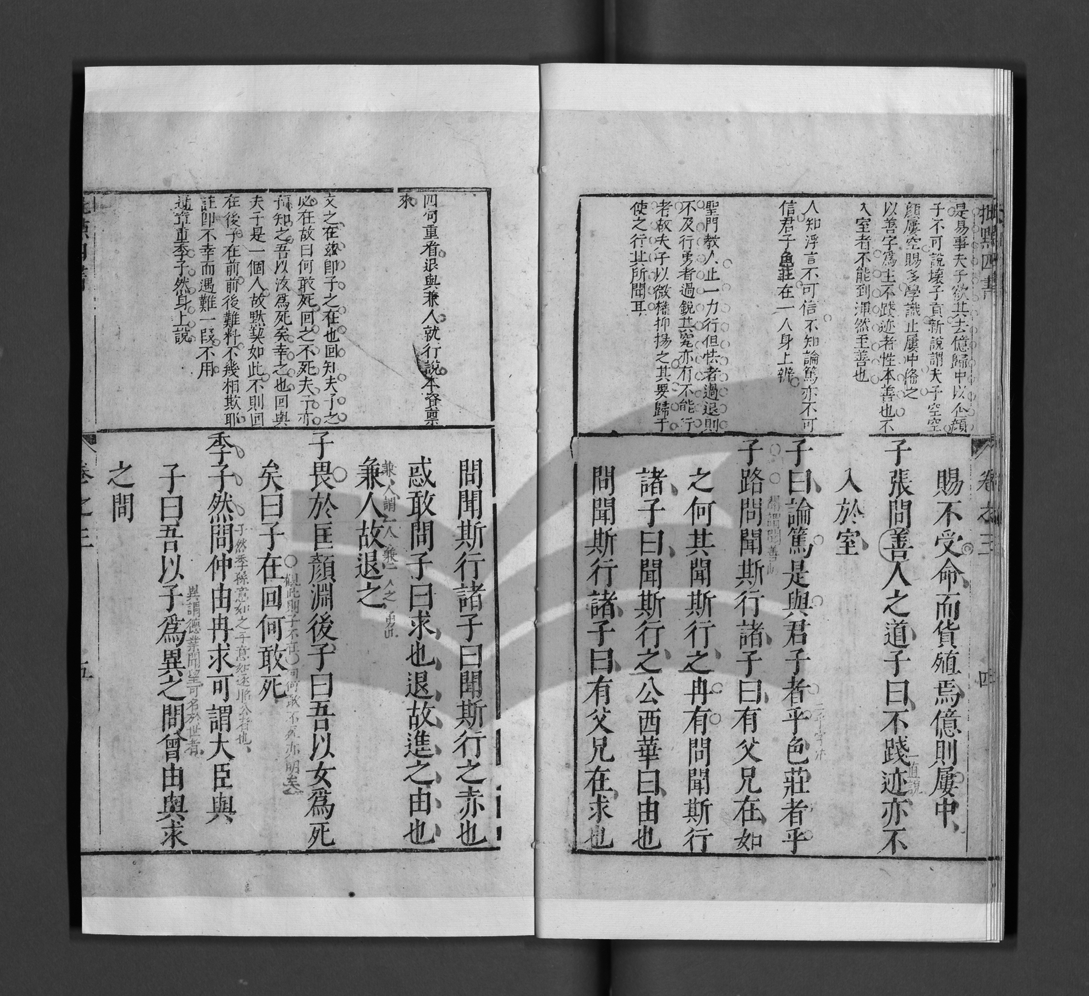 是易事夫子欲其去億歸中以企顔
子不可說壞子貢新說謂夫子空空
顔屢空賜多學識止屢中偹之
以善字爲主不踐迹者性本善也不
入室者不能到渾然至善也
人知浮言不可信不知論篤亦不可
信君子色莊在一人身上辨
聖門教人止一力行但怯者過退則
不及行勇者過銳其究亦有不能行
者故夫子以微權抑揚之其要歸于
使之行止所聞耳
賜不受命而貨殖焉億則屢中
子張問善人之道子曰不踐迹亦不
入於室
子曰論篤是與君子者乎色莊者乎
子路問聞斯行諸子曰有父兄在如
之何其聞斯行之冉有問聞斯行
諸子曰聞斯行之公西華曰由也
問聞斯行諸子曰有父兄在求也
卷之三
四
四句重看退與兼人就行說本資稟
來
文之在兹即子之在也回知夫子之
必在故曰何敢死回之不死夫子亦
子知之吾以汝爲死矣幸之也回與
夫子是一個人故默契如此不則回
在後子在前前後難料不幾相欺耶
註即不幸而遇難一段不用
通章重季子然身上說
問聞斯行諸子曰聞斯行之赤也
惑敢問子曰求也退故進之由也
兼人故退之
兼人謂一人兼二人之勇也
子畏於匡顏淵後子曰吾以女爲死
矣曰子在回何敢死
季子然問仲由冉求可謂大臣與
子曰吾以子爲異之問曾由與求
異謂德業聞望可名於世者
之間
卷之三
五